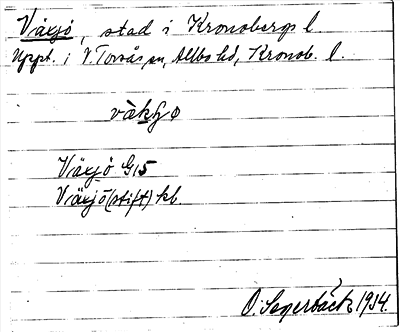 Växjö, stad i Kronobergs l.
Uppt. i V. Torsås sn, Allbo hd, Kronob. l.
Växjö G15
Växjö (stift) kb.
O. Segerbäck 1934.